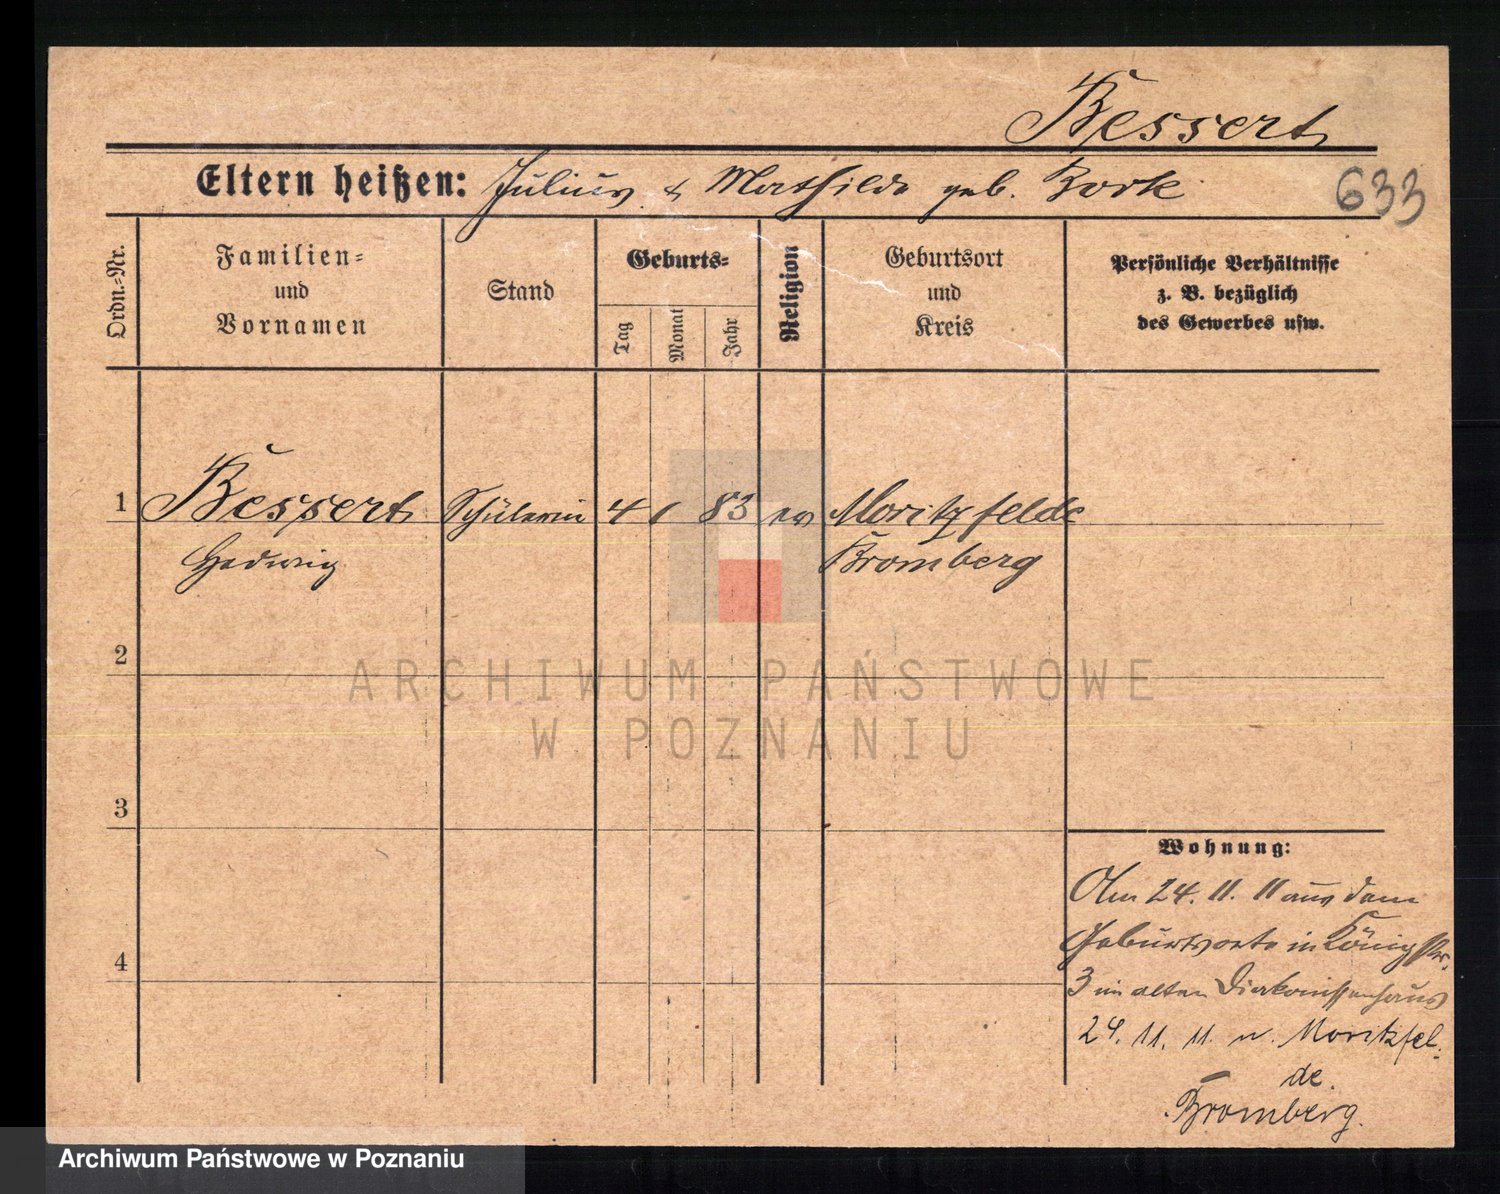 Bessert
Eltern heißen: Julius & Mathilde geb. Bork
633
Ordn.-Nr.
Familien-
und
Vornamen
Stand
Geburts-
Tag
Monat
Jahr
Religion
Geburtsort
und
Kreis
Persönliche Verhältnisse
z. B. bezüglich
des Gewerbes usw.
1
Bessert Schülerin 4 1 83 ev Moritzfelde
Hedwig Bromberg
2
ARCHIWUM PAŃSTWOWE
W POZNANIU
3
Wohnung:
Am 24. 11. 11 aus dem
Geburtsorte in Königstr.
3 im alten Diakonissenhaus
4
24. 11. 11. n. Moritzfel-
de.
Bromberg.
Archiwum Państwowe w Poznaniu